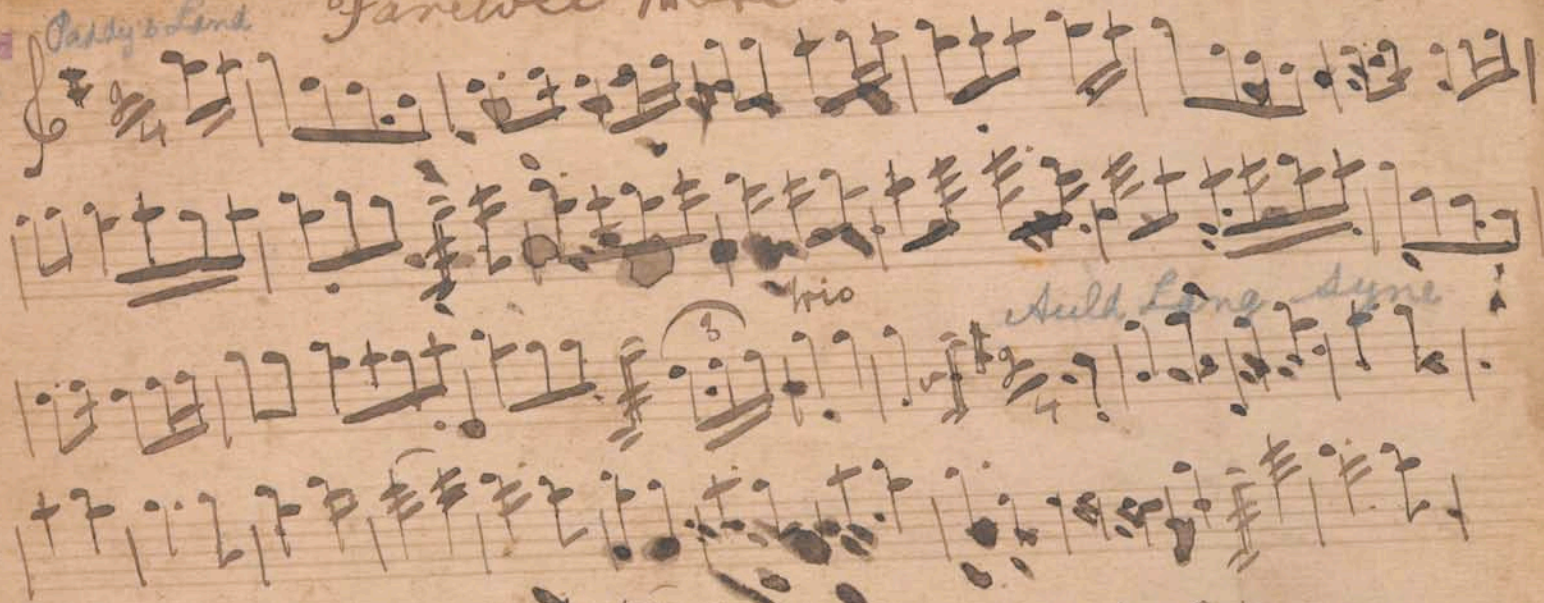 Paddy's Land
Farewell More
2/4
3
trio
Auld Lang Syne
2/4